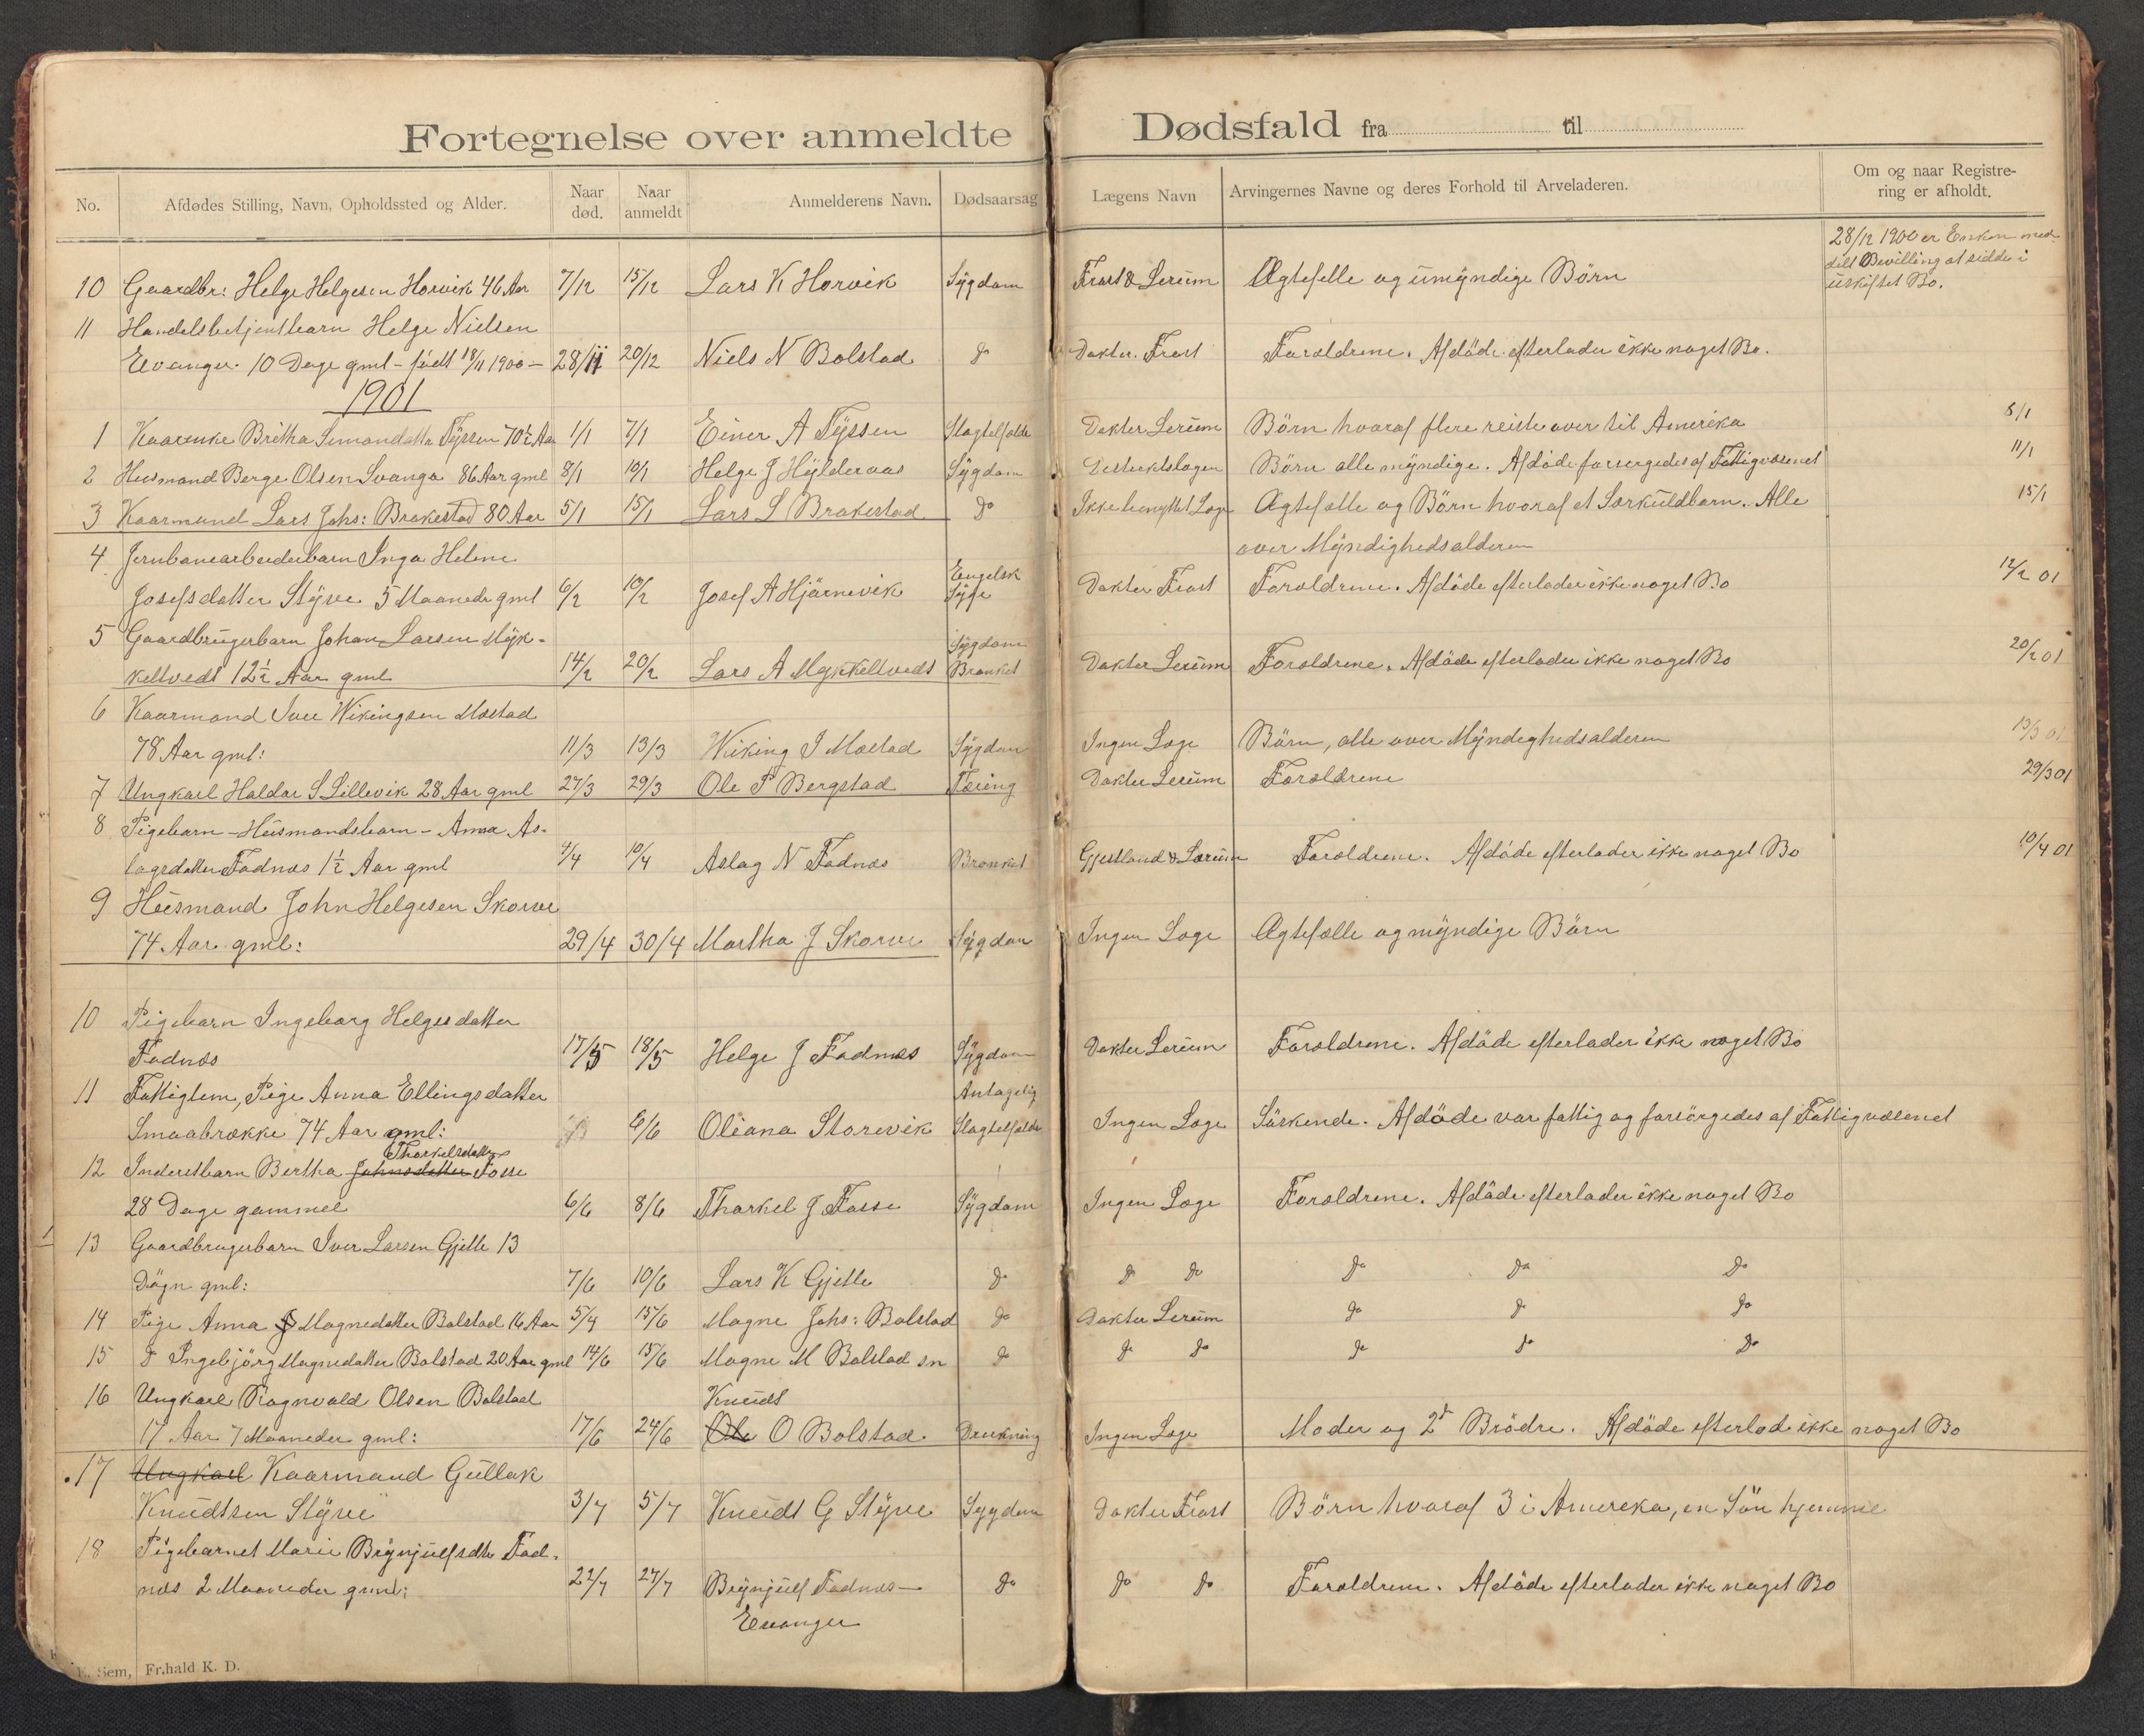 Fortegnelse over anmeldte Dødsfald fra til
No. Afdødes Stilling, Navn, Opholdssted og Alder. Naar død. Naar anmeldt Anmelderens Navn. Dødsaarsag Lægens Navn Arvingernes Navne og deres Forhold til Arveladeren. Om og naar Registrering er afholdt.
28/12 1900 er Enken med-
delt Bevilling at sidde i
uskiftet Bo.
10 Gaardbr: Helge Helgesen Horvik 46 Aar 7/12 15/12 Lars K Horvik Sÿgdom Frost & Lerum Ægtefelle og umÿndige Børn
11 Handelsbetjentbarn Helge Nielsen
Evanger. 10 Dage gml - født 18/11 1900 - 28/11 20/12 Niels N Bolstad do Dokter Frost Foræoldrene. Afdøde efterlader ikke noget Bo.
1901
1 Kaarenke Britha Simondatter Tÿssen 70½ Aar 1/1 7/1 Einer A Tÿssen Slagtelfælde Dokter Lerum Børn hvoraf flere reiste over til Amerika 8/1
2 Husmand Berge Olsen Svanga 86 Aar gml 8/1 10/1 Helge J Hÿlderaas Sÿgdom Distriktslægen Børn alle mÿndige. Afdøde forsørgedes af Fattigvæsenet 11/1
3 Kaarmand Lars Johs: Brakestad 80 Aar 5/1 15/1 Lars L Brakestad do Ikke benyttet Læge Ægtefælle og Børn hvoraf et Særkuldbarn. Alle 15/1
over Mÿndighedsalderen
4 Jernbanearbeiderbarn Inga Helene
Josefsdatter Stÿve 5 Maaneder gml 6/2 10/2 Josef A Hjärnevik Engelsk Sÿge Dokter Frost Foræoldrene. Afdøde efterlader ikke noget Bo 12/2 01
5 Gaardbrugerbarn Johan Larsen Mÿk-
keltvedt 12½ Aar gml 14/2 20/2 Lars A Mykkeltvedt Sÿgdom Bronkit Dokter Lerum Foræoldrene. Afdøde efterlader ikke noget Bo 20/2 01
6 Kaarmand Iver Wikingsen Mæstad
78 Aar gml: 11/3 13/3 Wiking I Mæstad Sÿgdom Ingen Læge Børn, alle over Mÿndighedsalderen 13/3 01
7 Ungkarl Haldor S Lillevik 28 Aar gml 27/3 29/3 Ole P Bergstad Tæring Dokter Lerum Forældrene 29/3 01
8 Pigebarn - Husmandsbarn - Anna As-
lagsdatter Fadnæs 1½ Aar gml 4/4 10/4 Aslag N Fadnæs Bronkit Gjestland & Lærum Forældrene. Afdøde efterlader ikke noget Bo 10/4 01
9 Husmand John Helgesen Skorve
74 Aar gml: 29/4 30/4 Martha J Skorve Sÿgdom Ingen Læge Ægtefælle og mÿndige Børn
10 Pigebarn Ingeborg Helgesdatter
Fadnæs 17/5 18/5 Helge J Fadnæs Sÿgdom Dokter Lerum Forældrene. Afdøde efterlader ikke noget Bo
11 Fattiglem, Pige Anna Ellingsdatter Antagelig
Smaabrække 74 Aar gml: 6/6 Oliana Storevik Slagtelfælde Ingen Læge Søskende. Afdøde var fattig og forsörgedes af Fattigvæsenet
12 Inderstbarn Bertha Johnsdatter Thorkelsdatter Fosse
28 Dage gammel 6/6 8/6 Thorkel J Fosse Sÿgdom Ingen Læge Forældrene. Afdøde efterlader ikke noget Bo
13 Gaardbrugerbarn Iver Larsen Gjelle 13
Døgn gml: 7/6 10/6 Lars K Gjelle do do do do do do
14 Pige Anna Magnedatter Bolstad 16 Aar 5/4 15/6 Magne Johs: Bolstad do Dokter Lerum do do do
15 do Ingebjörg Magnedatter Bolstad 20 Aar gml 14/6 15/6 Magne M Bolstad sn do do do do do do
16 Ungkarl Ragnvald Olsen Bolstad Knudt
17 Aar 7 Maaneder gml: 17/6 24/6 Ole O Bolstad Drukning Ingen Læge Moder og 2de Brødre. Afdøde efterlod ikke noget Bo
17 Ungkarl Kaarmand Gullak
Knudtsen Stÿve 3/7 5/7 Knudt G Stÿve Sygdom Dokter Frost Børn hvoraf 3 i Amereka, en Sön hjemme
18 Pigebarnet Marie Brÿnjulfsdtr Fad-
næs 2 Maaneder gml: 22/7 27/7 Brÿnjulf Fadnæs - do do do Forældrene. Afdøde efterlader ikke noget Bo
Evanger
Sem, Fr.hald K. D.